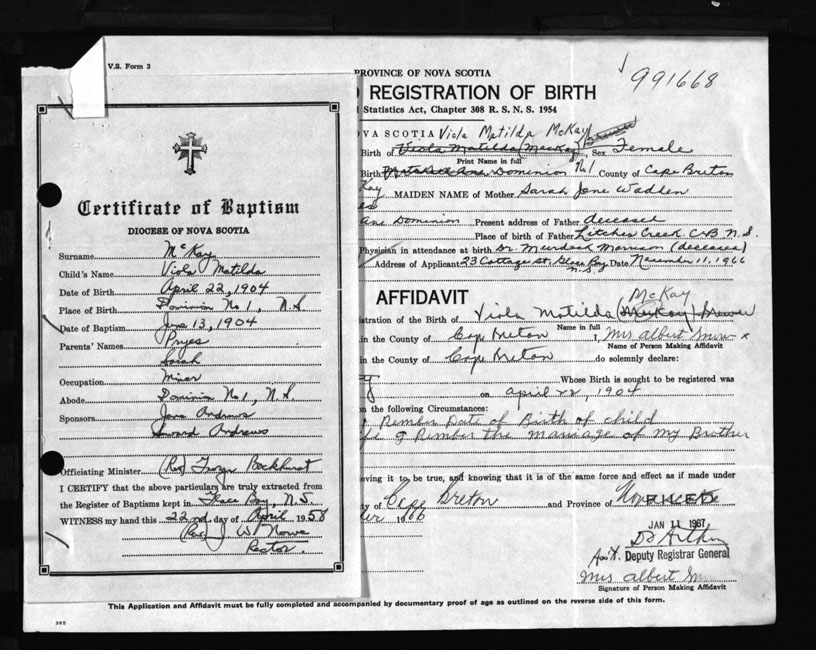 V.S. Form 3
Certificate of Baptism
DIOCESE OF NOVA SCOTIA
Surname McKay
Child's Name Viola Matilda
Date of Birth April 22, 1904
Place of Birth Dominion No 1, N.S
Date of Baptism 13, 1904
Parents' Names
Sarah
Occupation Miner
Abode Dominion No 1, N.S
Sponsors Jane Andrews
Edward Andrews
Officiating Minister (Rev)
I CERTIFY that the above particulars are truly extracted from
the Register of Baptisms kept in Glace Bay, N.S
WITNESS my hand this 22nd day of April 1958
Rev J. W.
Rector.
PROVINCE OF NOVA SCOTIA
991668
REGISTRATION OF BIRTH
Statistics Act, Chapter 308 R. S. N. S. 1954
OVA SCOTIA Viola Matilda McKay Brewer
Birth of Viola Matilda (MacKay) Sex Female
Print Name in full
Birth Dominion No 1 County of Cape Breton
Kay MAIDEN NAME of Mother Sarah Jane Wadden
Dominion Present address of Father deceased
Place of birth of Father Creek C.B. N.S.
Physician in attendance at birth Dr. Murdock Morrison (deceased)
Address of Applicant 23 Cottage St. Glace Bay Date November 11, 1966
N.S.
AFFIDAVIT
McKay
istration of the Birth of Viola Matilda Brewer
Name in full
in the County of Cape Breton I, Mrs Albert
Name of Person Making Affidavit
in the County of Cape Breton do solemnly declare:
Whose Birth is sought to be registered was
on April 22, 1904
n the following Circumstances:
Rember Date of Birth of child
I Rember the Marriage of My Brother
eving it to be true, and knowing that it is of the same force and effect as if made under
ty of Cape Breton and Province of
1966
FILED
JAN 11 1967
Deputy Registrar General
Mrs Albert
Signature of Person Making Affidavit
This Application and Affidavit must be fully completed and accompanied by documentary proof of age as outlined on the reverse side of this form.